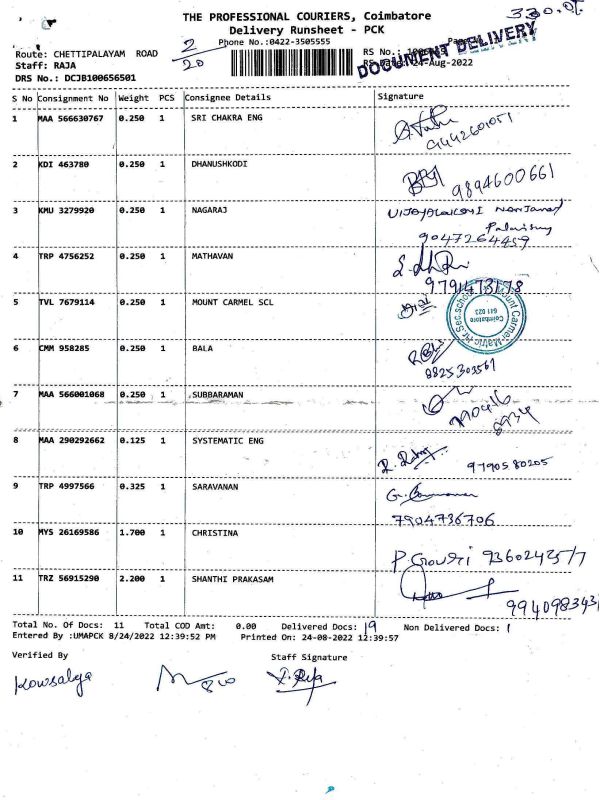 THE PROFESSIONAL COURIERS, Coimbatore
Delivery Runsheet - PCK
Phone No.:0422-3505555
DOCUMENT DELIVERY
Route: CHETTIPALAYAM ROAD
Staff: RAJA
DRS No.: DCJB100656501
2/20
RS No.:
24-Aug-2022
S No Consignment No Weight PCS Consignee Details Signature
1 MAA 566630767 0.250 1 SRI CHAKRA ENG
9442601051
2 KDI 463780 0.250 1 DHANUSHKODI
9894600661
3 KMU 3279920 0.250 1 NAGARAJ
9047264459
4 TRP 4756252 0.250 1 MATHAVAN
9791473178
5 TVL 7679114 0.250 1 MOUNT CARMEL SCL
Mount Carmel Matric Hr.Sec.school
Coimbatore
641 023
6 CMM 958285 0.250 1 BALA
9825303561
7 MAA 566001068 0.250 1 SUBBARAMAN
8 MAA 290292662 0.125 1 SYSTEMATIC ENG
9790580205
9 TRP 4997566 0.325 1 SARAVANAN
7904736706
10 MYS 26169586 1.700 1 CHRISTINA
P. Gowri 9360242517
11 TRZ 56915290 2.200 1 SHANTHI PRAKASAM
Total No. Of Docs: 11 Total COD Amt: 0.00 Delivered Docs: 19 Non Delivered Docs: 1
Entered By :UMAPCK 8/24/2022 12:39:52 PM Printed On: 24-08-2022 12:39:57
Verified By Staff Signature
Kowsalya